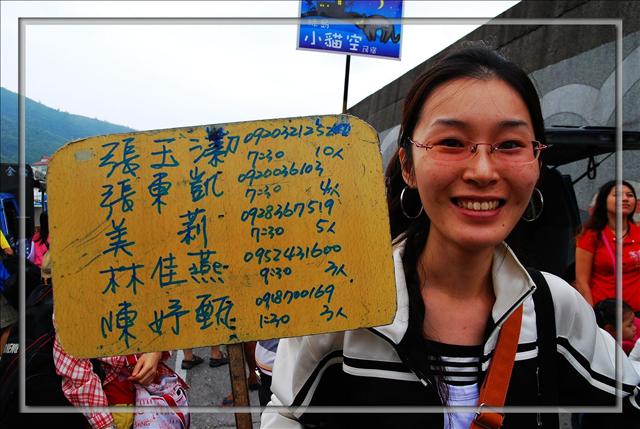 小貓空
民宿
張玉瀞 0920321252
7:30 10人
張東凱 0920036103
7:30 4人
美莉 0928367519
7:30 5人
林佳燕 0952431600
9:30 3人
陳妤甄 0918700169
1:30 3人